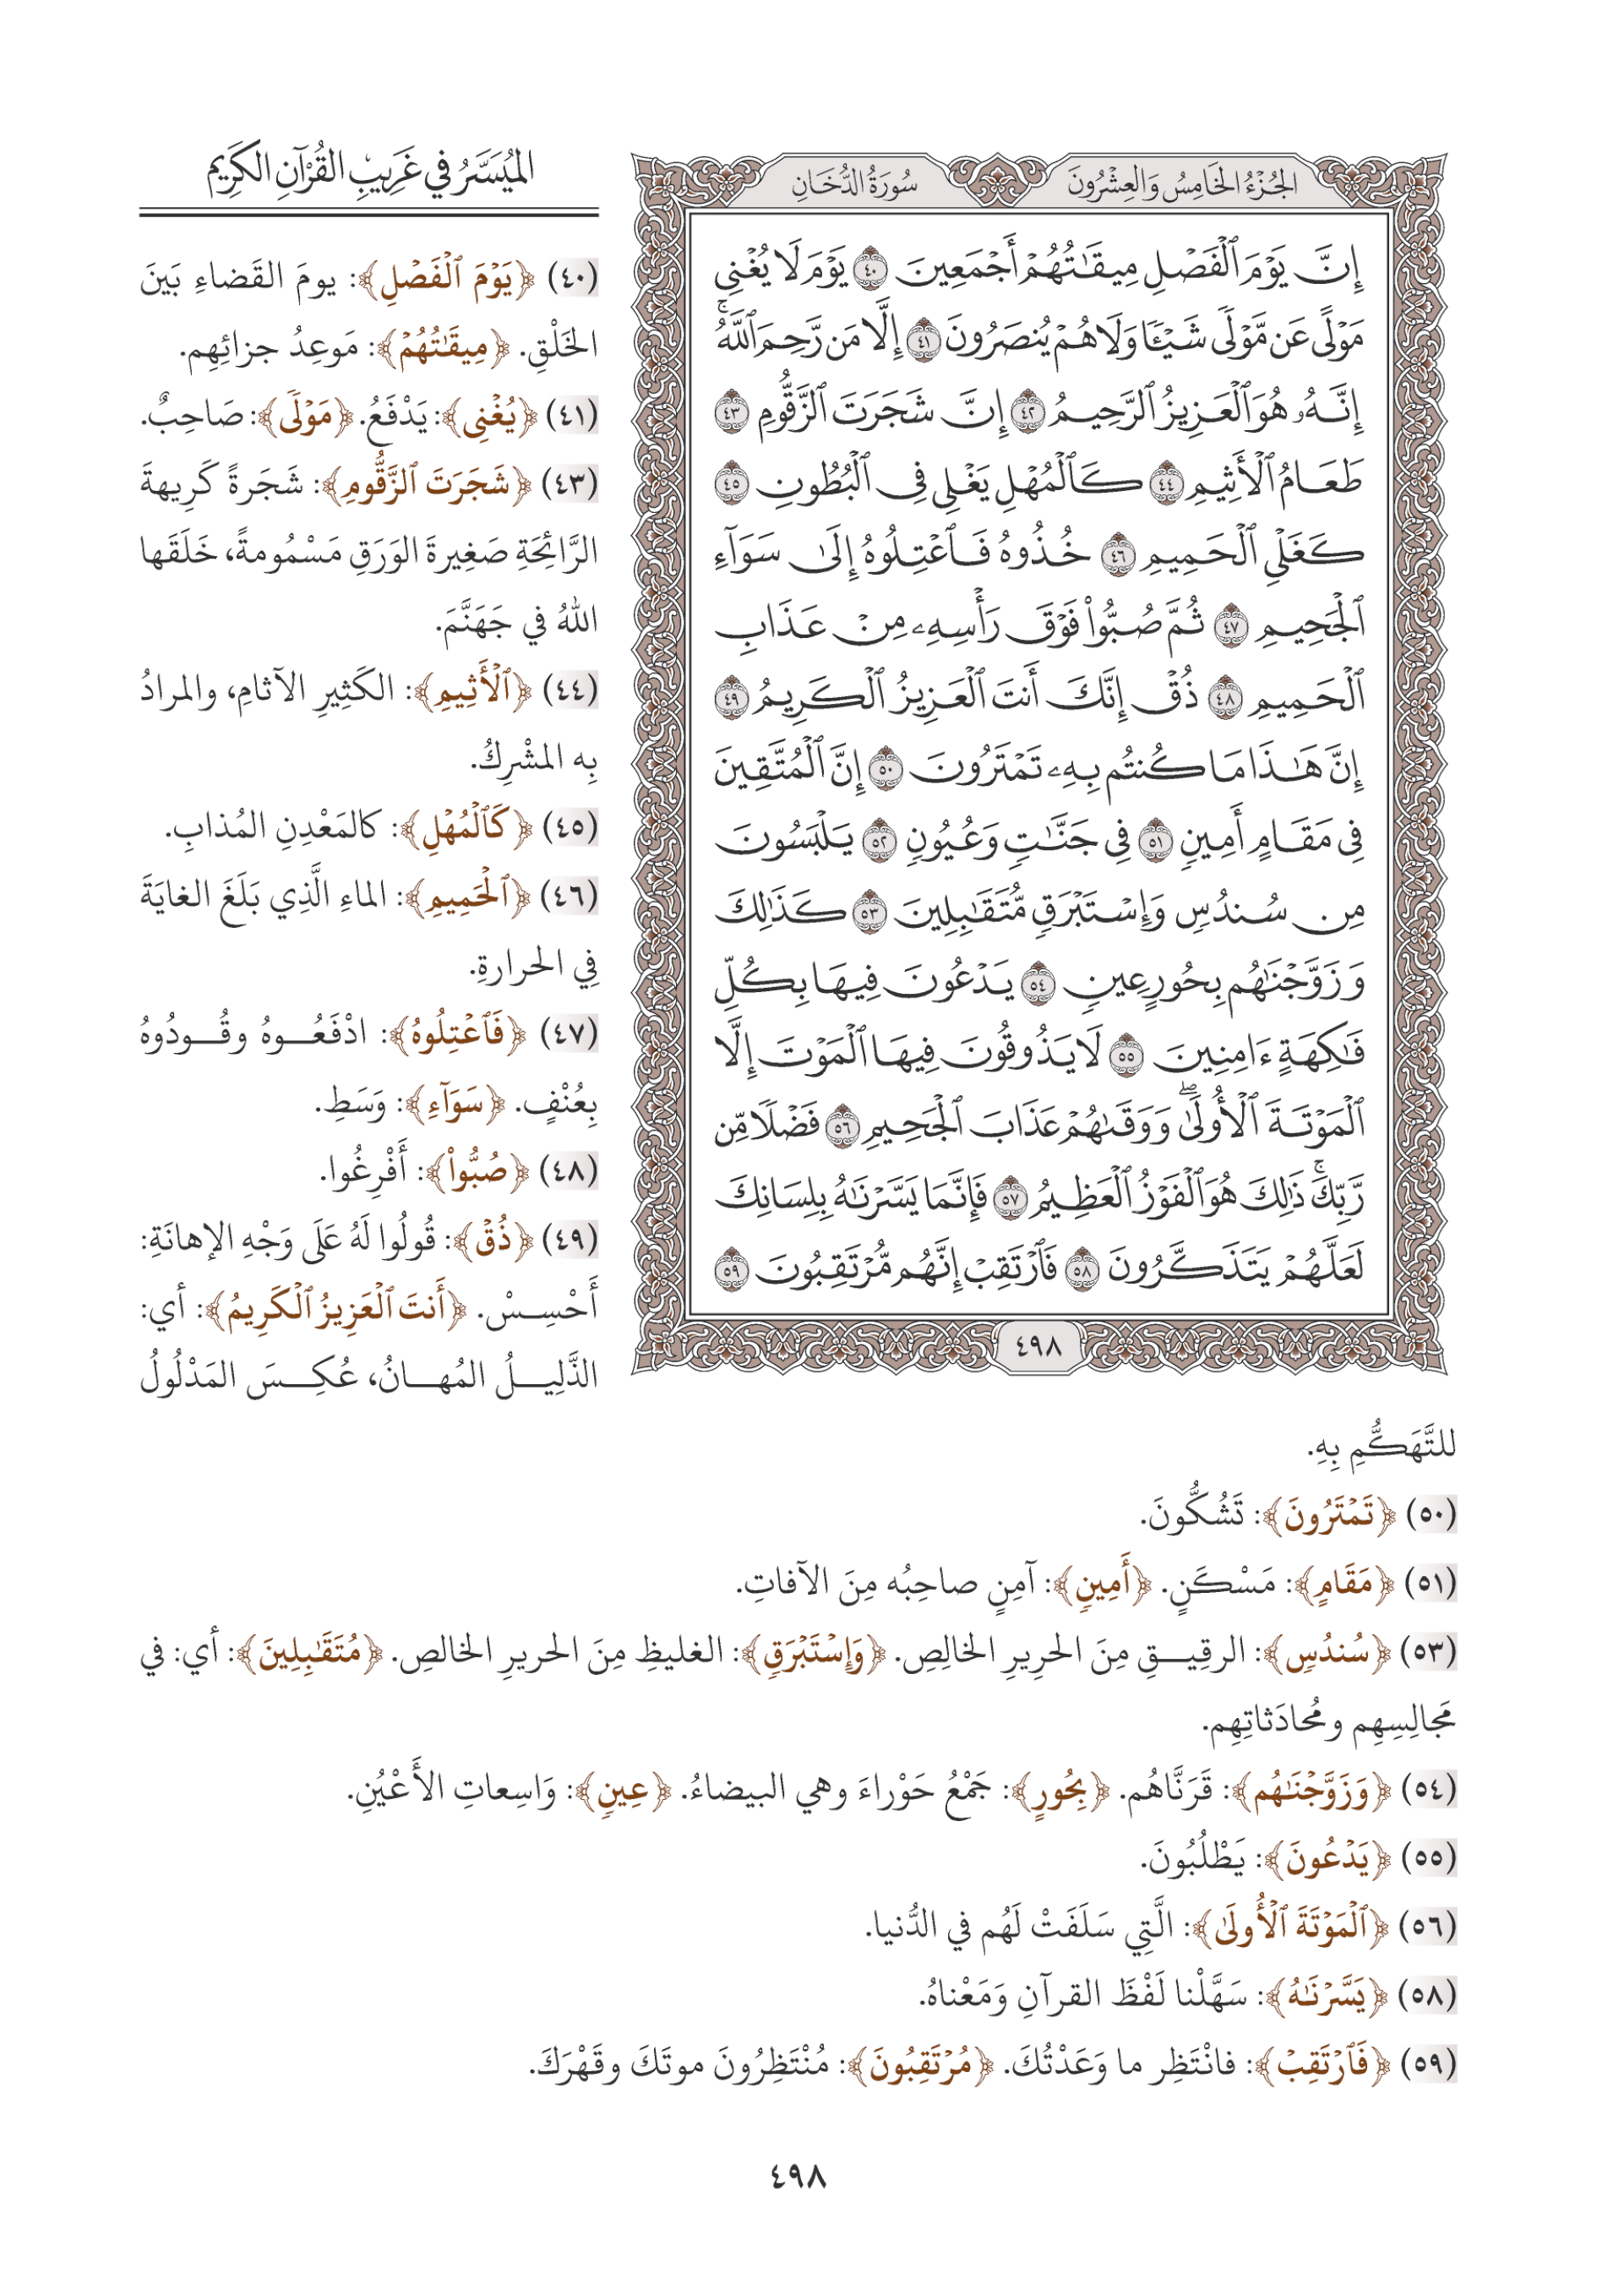 الجُزْءُ الخَامِسُ وَالعِشْرُونَ
سُورَةُ الدُّخَانِ
إِنَّ يَوْمَ ٱلْفَصْلِ مِيقَٰتُهُمْ أَجْمَعِينَ ٤٠ يَوْمَ لَا يُغْنِى
مَوْلًى عَن مَّوْلًى شَيْـًٔا وَلَا هُمْ يُنصَرُونَ ٤١ إِلَّا مَن رَّحِمَ ٱللَّهُۚ
إِنَّهُۥ هُوَ ٱلْعَزِيزُ ٱلرَّحِيمُ ٤٢ إِنَّ شَجَرَتَ ٱلزَّقُّومِ ٤٣
طَعَامُ ٱلْأَثِيمِ ٤٤ كَٱلْمُهْلِ يَغْلِى فِى ٱلْبُطُونِ ٤٥
كَغَلْىِ ٱلْحَمِيمِ ٤٦ خُذُوهُ فَٱعْتِلُوهُ إِلَىٰ سَوَآءِ
ٱلْجَحِيمِ ٤٧ ثُمَّ صُبُّوا۟ فَوْقَ رَأْسِهِۦ مِنْ عَذَابِ
ٱلْحَمِيمِ ٤٨ ذُقْ إِنَّكَ أَنتَ ٱلْعَزِيزُ ٱلْكَرِيمُ ٤٩
إِنَّ هَٰذَا مَا كُنتُم بِهِۦ تَمْتَرُونَ ٥٠ إِنَّ ٱلْمُتَّقِينَ
فِى مَقَامٍ أَمِينٍ ٥١ فِى جَنَّٰتٍ وَعُيُونٍ ٥٢ يَلْبَسُونَ
مِن سُندُسٍ وَإِسْتَبْرَقٍ مُّتَقَٰبِلِينَ ٥٣ كَذَٰلِكَ
وَزَوَّجْنَٰهُم بِحُورٍ عِينٍ ٥٤ يَدْعُونَ فِيهَا بِكُلِّ
فَٰكِهَةٍ ءَامِنِينَ ٥٥ لَا يَذُوقُونَ فِيهَا ٱلْمَوْتَ إِلَّا
ٱلْمَوْتَةَ ٱلْأُولَىٰۖ وَوَقَىٰهُمْ عَذَابَ ٱلْجَحِيمِ ٥٦ فَضْلًا مِّن
رَّبِّكَۚ ذَٰلِكَ هُوَ ٱلْفَوْزُ ٱلْعَظِيمُ ٥٧ فَإِنَّمَا يَسَّرْنَٰهُ بِلِسَانِكَ
لَعَلَّهُمْ يَتَذَكَّرُونَ ٥٨ فَٱرْتَقِبْ إِنَّهُم مُّرْتَقِبُونَ ٥٩
٤٩٨
المُيَسَّرُ في غَرِيبِ القُرْآنِ الكَرِيمِ
(٤٠) ﴿يَوْمَ ٱلْفَصْلِ﴾: يومَ القَضاءِ بَينَ
الخَلْقِ. ﴿مِيقَٰتُهُمْ﴾: مَوعِدُ جزائِهِم.
(٤١) ﴿يُغْنِى﴾: يَدْفَعُ. ﴿مَوْلًى﴾: صَاحِبٌ.
(٤٣) ﴿شَجَرَتَ ٱلزَّقُّومِ﴾: شَجَرةً كَرِيهةَ
الرَّائِحَةِ صَغِيرةَ الوَرَقِ مَسْمُومةً، خَلَقَها
اللهُ في جَهَنَّمَ.
(٤٤) ﴿ٱلْأَثِيمِ﴾: الكَثِيرِ الآثامِ، والمرادُ
بِه المشْرِكُ.
(٤٥) ﴿كَٱلْمُهْلِ﴾: كالمَعْدِنِ المُذابِ.
(٤٦) ﴿ٱلْحَمِيمِ﴾: الماءِ الَّذِي بَلَغَ الغايَةَ
فِي الحرارةِ.
(٤٧) ﴿فَٱعْتِلُوهُ﴾: ادْفَعُــوهُ وقُــودُوهُ
بِعُنْفٍ. ﴿سَوَآءِ﴾: وَسَطِ.
(٤٨) ﴿صُبُّوا۟﴾: أَفْرِغُوا.
(٤٩) ﴿ذُقْ﴾: قُولُوا لَهُ عَلَى وَجْهِ الإهانَةِ:
أَحْسِــسْ. ﴿أَنتَ ٱلْعَزِيزُ ٱلْكَرِيمُ﴾: أي:
الذَّلِيــلُ المُهــانُ، عُكِــسَ المَدْلُولُ
للتَّهَكُّمِ بِهِ.
(٥٠) ﴿تَمْتَرُونَ﴾: تَشُكُّونَ.
(٥١) ﴿مَقَامٍ﴾: مَسْكَنٍ. ﴿أَمِينٍ﴾: آمِنٍ صاحِبُه مِنَ الآفاتِ.
(٥٣) ﴿سُندُسٍ﴾: الرقِيــقِ مِنَ الحرِيرِ الخالِصِ. ﴿وَإِسْتَبْرَقٍ﴾: الغليظِ مِنَ الحريرِ الخالصِ. ﴿مُتَقَٰبِلِينَ﴾: أي: في
مَجالِسِهِم ومُحادَثاتِهِم.
(٥٤) ﴿وَزَوَّجْنَٰهُم﴾: قَرَنَّاهُم. ﴿بِحُورٍ﴾: جَمْعُ حَوْراءَ وهي البيضاءُ. ﴿عِينٍ﴾: وَاسِعاتِ الأَعْيُنِ.
(٥٥) ﴿يَدْعُونَ﴾: يَطْلُبُونَ.
(٥٦) ﴿ٱلْمَوْتَةَ ٱلْأُولَىٰ﴾: الَّتِي سَلَفَتْ لَهُم في الدُّنيا.
(٥٨) ﴿يَسَّرْنَٰهُ﴾: سَهَّلْنا لَفْظَ القرآنِ وَمَعْناهُ.
(٥٩) ﴿فَٱرْتَقِبْ﴾: فانْتَظِر ما وَعَدْتُكَ. ﴿مُرْتَقِبُونَ﴾: مُنْتَظِرُونَ موتَكَ وقَهْرَكَ.
٤٩٨